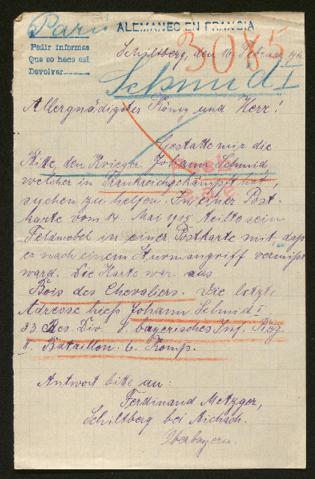 Paris
ALEMANES EN FRANCIA
Pedir informes
Que se hace así
Devolver
Schiltberg, den 16. Februar
3075
Schmid I
Allergnädigster König und Herr!
Gestatte mir die
Bitte, den Krieger Johann Schmid
welcher in Frankreich gekämpft hat,
suchen zu helfen. In einer Post
karte vom 14 Mai 1915 teilte sein
Feldwebel in einer Postkarte mit daß
er nach einem Sturmangriff vermißt
ward. Die Karte war aus
Bois des Chevaliers. Die letzte
Adresse hieß Johann Schmid I
33 Res. Div. 8. bayerisches Inf. Reg.
II. Bataillon. 6. Komp.
Antwort bitte an:
Ferdinand Metzger,
Schiltberg bei Aichach.
Oberbayern.